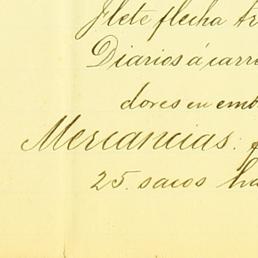 Flete flecha tr
Diarios á carre
dores en emb
Mercancias:
25. sacos ha